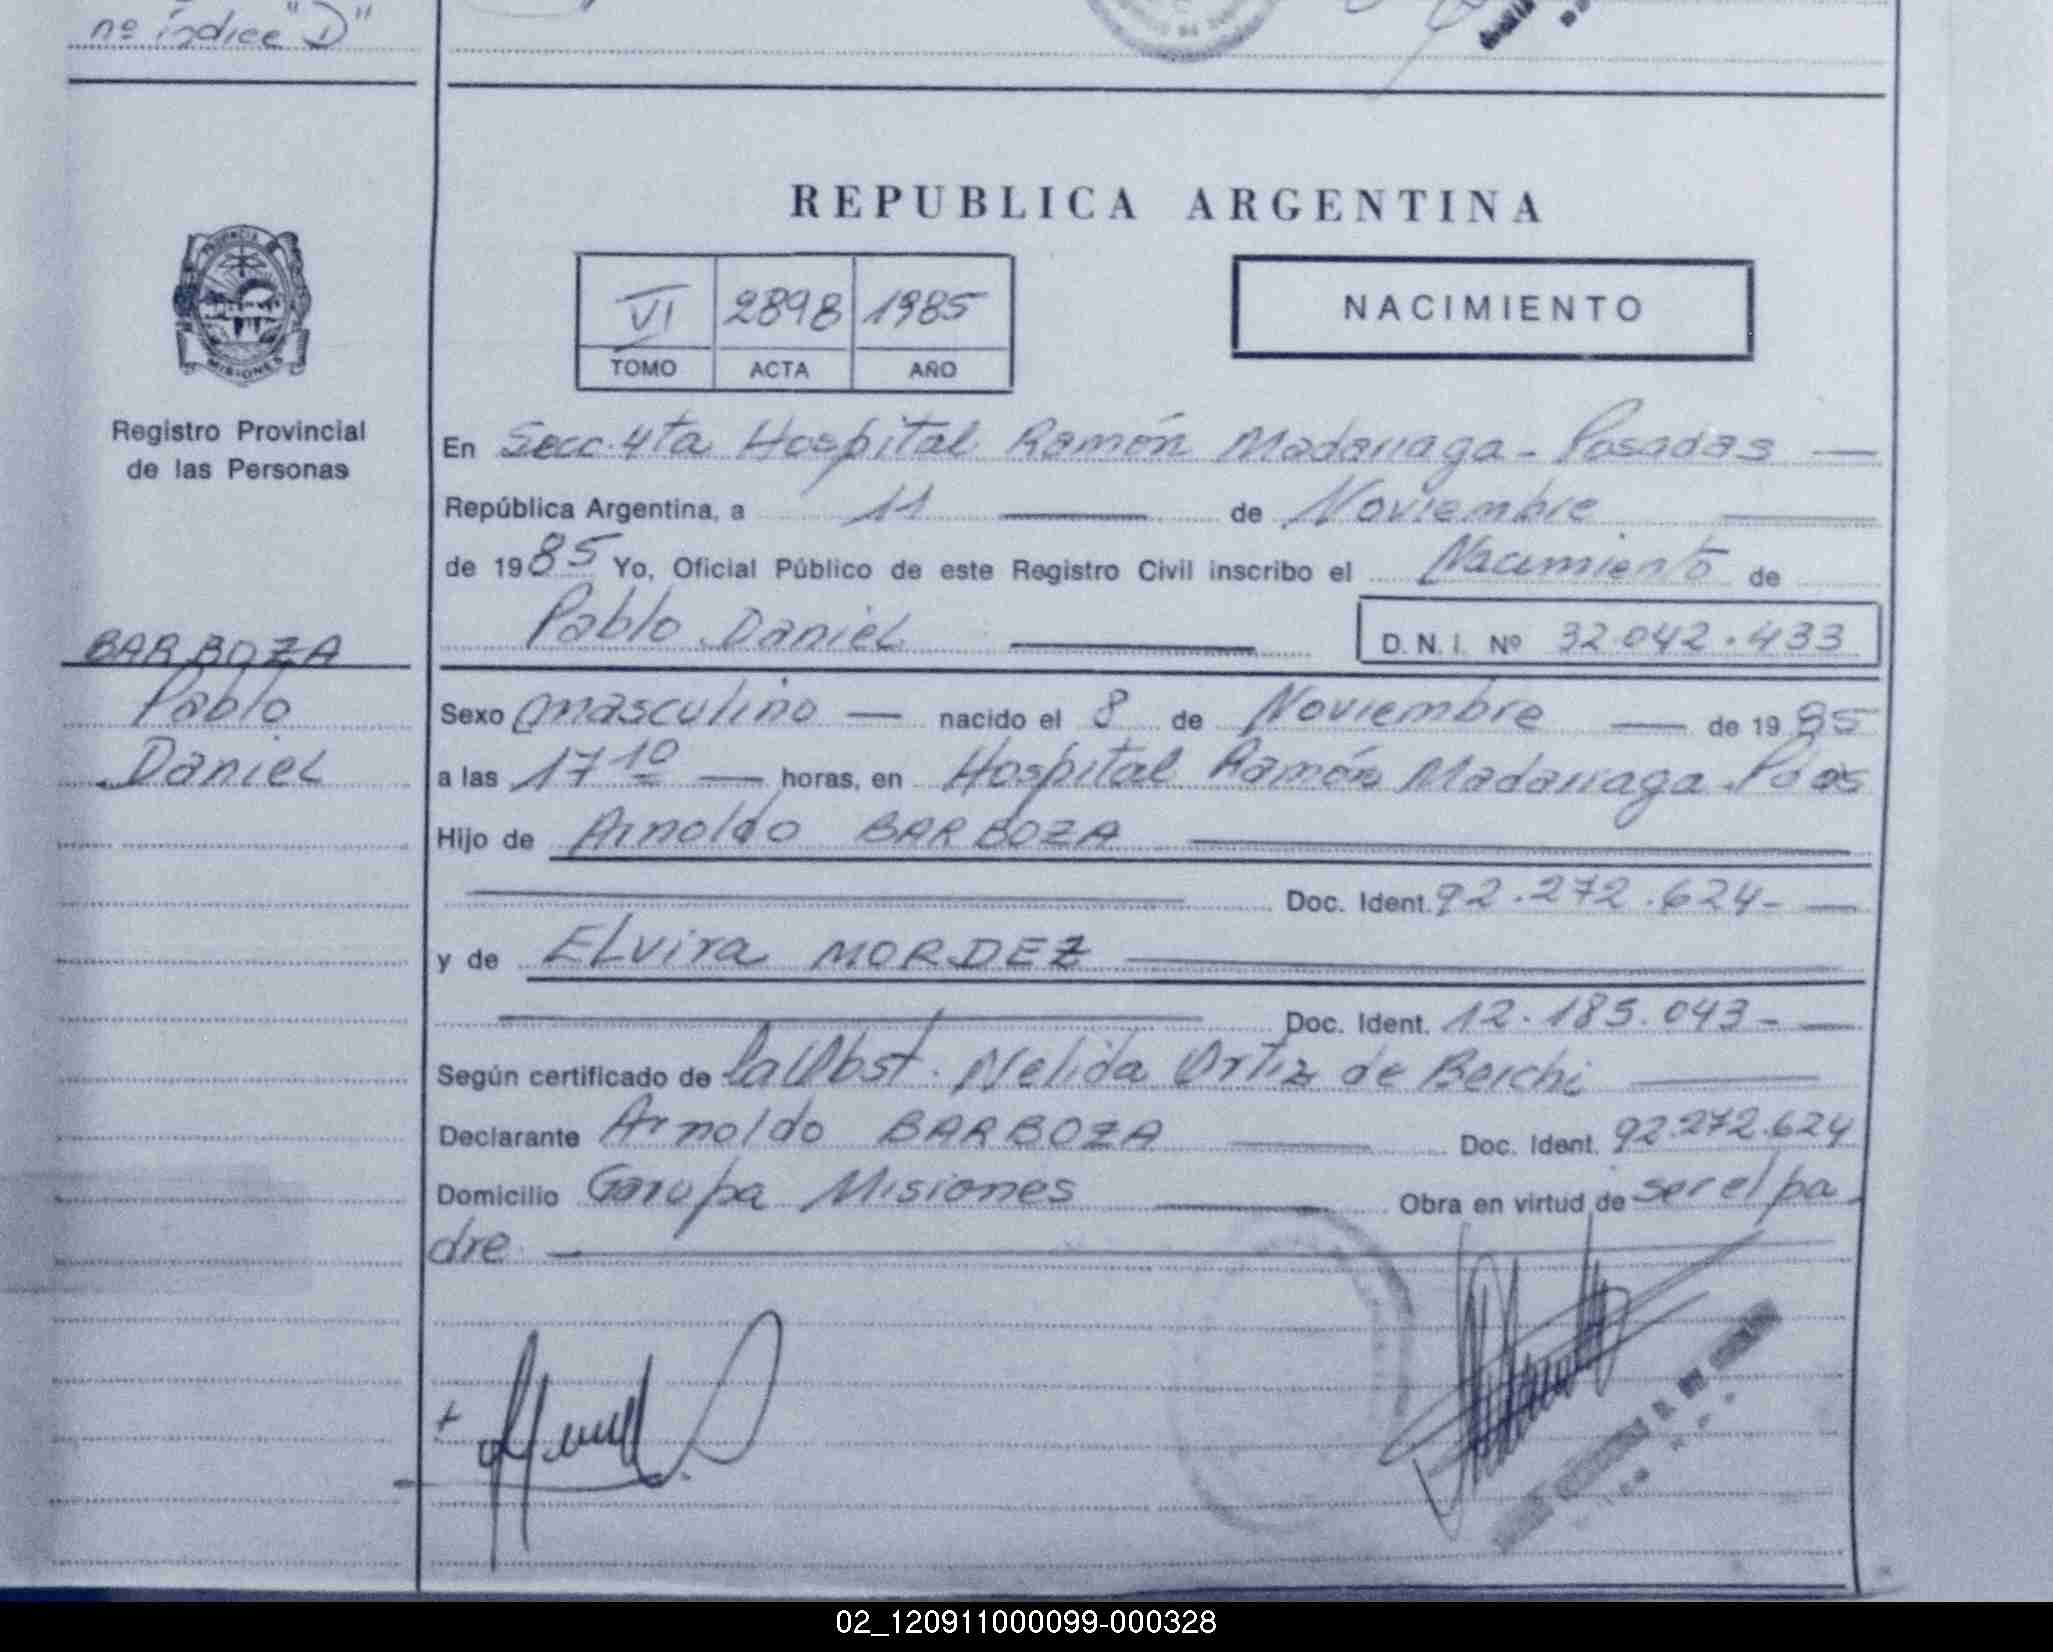 nº índice "D"
REPUBLICA ARGENTINA
PROVINCIA DE
MISIONES
VI 2898 1985
TOMO ACTA AÑO
NACIMIENTO
Registro Provincial
de las Personas
En Secc. 4ta Hospital Ramón Madariaga - Posadas —
República Argentina, a 11 — de Noviembre —
de 1985 Yo, Oficial Público de este Registro Civil inscribo el Nacimiento de
Pablo Daniel — D. N. I. Nº 32.042.433
BARBOZA
Pablo
Daniel
Sexo masculino — nacido el 8 de Noviembre — de 1985
a las 17 10 — horas, en Hospital Ramón Madariaga - Pdas
Hijo de Arnoldo BARBOZA —
— Doc. Ident. 92.272.624- —
y de ELvira MORDEZ —
— Doc. Ident. 12.185.043- —
Según certificado de la Obst. Nelida Ortiz de Berchi —
Declarante Arnoldo BARBOZA — Doc. Ident. 92.272.624
Domicilio Garupa Misiones — Obra en virtud de ser el pa
dre. —
02_120911000099-000328